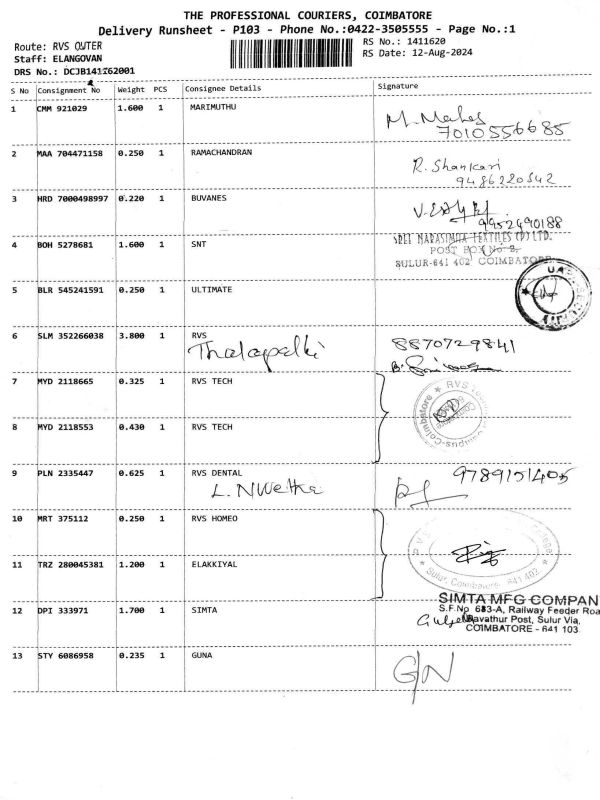 THE PROFESSIONAL COURIERS, COIMBATORE
Delivery Runsheet - P103 - Phone No.:0422-3505555 - Page No.:1
Route: RVS OUTER
RS No.: 1411620
Staff: ELANGOVAN
RS Date: 12-Aug-2024
DRS No.: DCJB141162001
S No Consignment No Weight PCS Consignee Details Signature
1 CMM 921029 1.600 1 MARIMUTHU
M. Mahes
7010556685
2 MAA 704471158 0.250 1 RAMACHANDRAN
R. Shankari
9486220542
3 HRD 7000498997 0.220 1 BUVANES
9952490188
4 BOH 5278681 1.600 1 SNT
SREE NARASIMHA TEXTILES (P) LTD.
POST BOX No 2,
SULUR-641 402 COIMBATORE
5 BLR 545241591 0.250 1 ULTIMATE
6 SLM 352266038 3.800 1 RVS
Thalapalli
8870729841
7 MYD 2118665 0.325 1 RVS TECH
8 MYD 2118553 0.430 1 RVS TECH
9 PLN 2335447 0.625 1 RVS DENTAL
L. NWetha
9789151405
10 MRT 375112 0.250 1 RVS HOMEO
11 TRZ 280045381 1.200 1 ELAKKIYAL
Sulur, Coimbatore - 641 402
12 DPI 333971 1.700 1 SIMTA
SIMTA MFG COMPAN
S.F.No 683-A, Railway Feeder Roa
Ravathur Post, Sulur Via,
COIMBATORE - 641 103
13 STY 6086958 0.235 1 GUNA
G/N